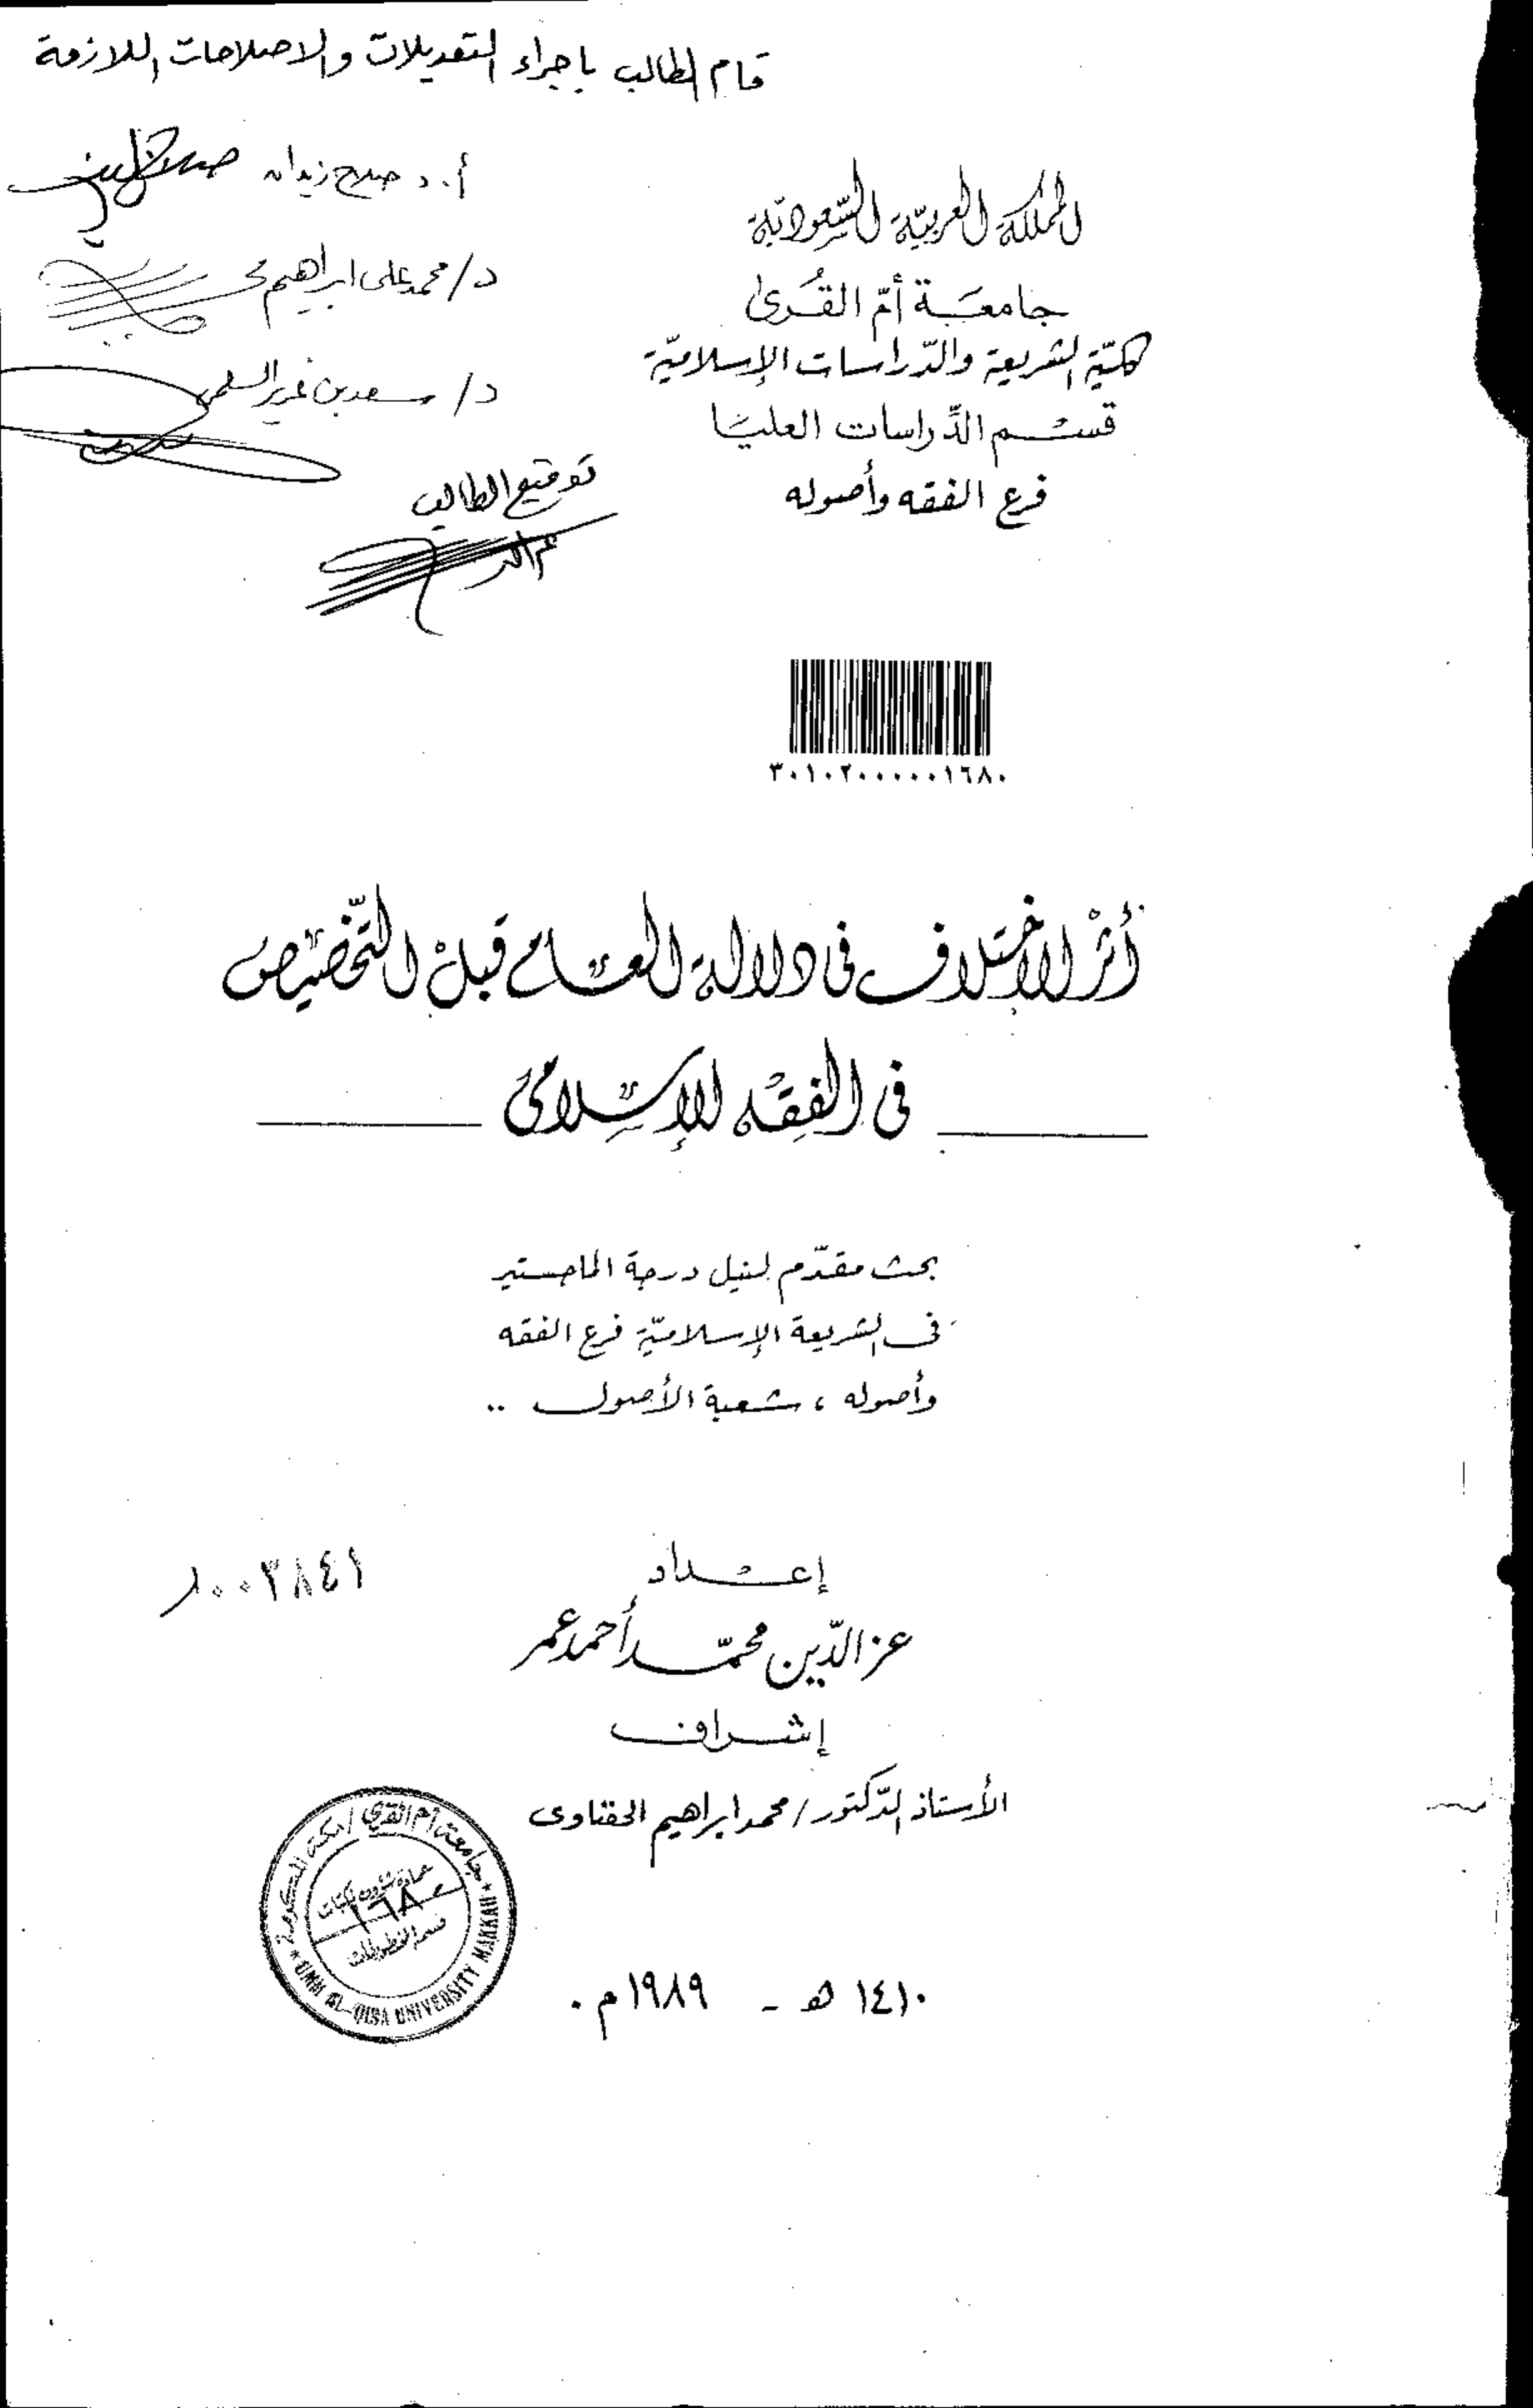 قام الطالب باجراء التعديلات والاصلاحات اللازمة
أ. د صلاح زيدان
د/ محمد على ابراهيم
د/ سعد بن غرير السلمى
توقيع الطالب
المملكة العربيّة السّعوديّة
جامعَة أمّ القُرىٰ
كليّة الشريعة والدّراسات الإسلاميّة
قسم الدِّراسات العليَا
فرع الفقه وأصوله
٣٠١٠٢٠٠٠٠٠١٦٨٠
أثرُ الاختلاف فى دلالة العام قبلَ التّخصيص
فى الفِقه الإسلامىّ
بحث مقدّم لنيل درجة الماجستير
فى الشريعة الإسلاميّة فرع الفقه
وأصوله ، شعبة الأصول ..
إعداد
عز الدّين محمّد أحمد عمر
إشراف
الأستاذ الدّكتور / محمد ابراهيم الحفناوى
جامعة أم القرى / مكة المكرمة
عمادة شئون المكتبات
١٦٨٠
قسم المخطوطات
UMM AL-QURA UNIVERSITY MAKKAH
١٤١٠ هـ - ١٩٨٩ م .